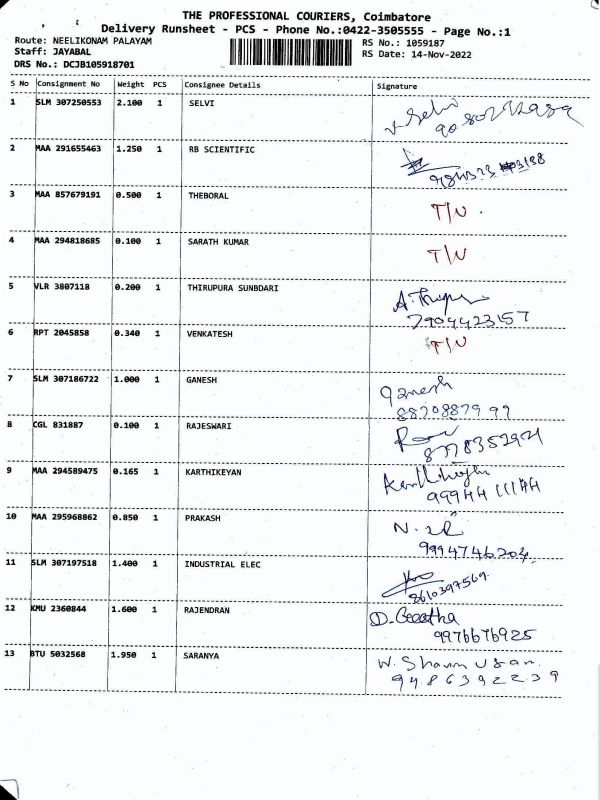 THE PROFESSIONAL COURIERS, Coimbatore
Delivery Runsheet - PCS - Phone No.:0422-3505555 - Page No.:1
Route: NEELIKONAM PALAYAM
RS No.: 1059187
Staff: JAYABAL
RS Date: 14-Nov-2022
DRS No.: DCJB105918701
S No Consignment No Weight PCS Consignee Details Signature
1 SLM 307250553 2.100 1 SELVI
2 MAA 291655463 1.250 1 RB SCIENTIFIC
3 MAA 857679191 0.500 1 THEBORAL T/N .
4 MAA 294818685 0.100 1 SARATH KUMAR T/N
5 VLR 3807118 0.200 1 THIRUPURA SUNBDARI
7904423157
6 RPT 2045858 0.340 1 VENKATESH T/N
7 SLM 307186722 1.000 1 GANESH Ganesh
8870887999
8 CGL 831887 0.100 1 RAJESWARI
9 MAA 294589475 0.165 1 KARTHIKEYAN
99944 11144
10 MAA 295968862 0.850 1 PRAKASH
9994746204
11 SLM 307197518 1.400 1 INDUSTRIAL ELEC
8610397569
12 KMU 2360844 1.600 1 RAJENDRAN D. Geetha
9976676925
13 BTU 5032568 1.950 1 SARANYA
9486392239